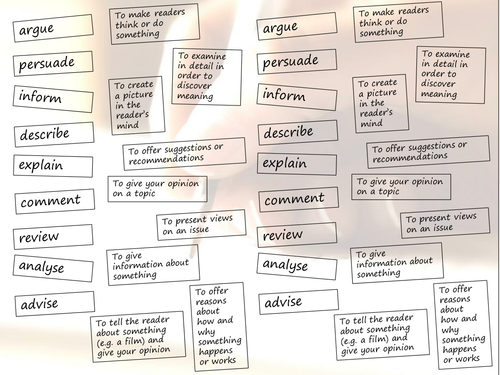 argue
persuade
inform
describe
explain
comment
review
analyse
advise
To make readers
think or do
something
To examine
in detail in
order to
discover
meaning
To create
a picture
in the
reader's
mind
To offer suggestions or
recommendations
To give your opinion
on a topic
To present views
on an issue
To give
information about
something
To offer
reasons
about
how and
why
something
happens
or works
To tell the reader
about something
(e.g. a film) and
give your opinion
argue
persuade
inform
describe
explain
comment
review
analyse
advise
To make readers
think or do
something
To examine
in detail in
order to
discover
meaning
To create
a picture
in the
reader's
mind
To offer suggestions or
recommendations
To give your opinion
on a topic
To present views
on an issue
To give
information about
something
To offer
reasons
about
how and
why
something
happens
or works
To tell the reader
about something
(e.g. a film) and
give your opinion